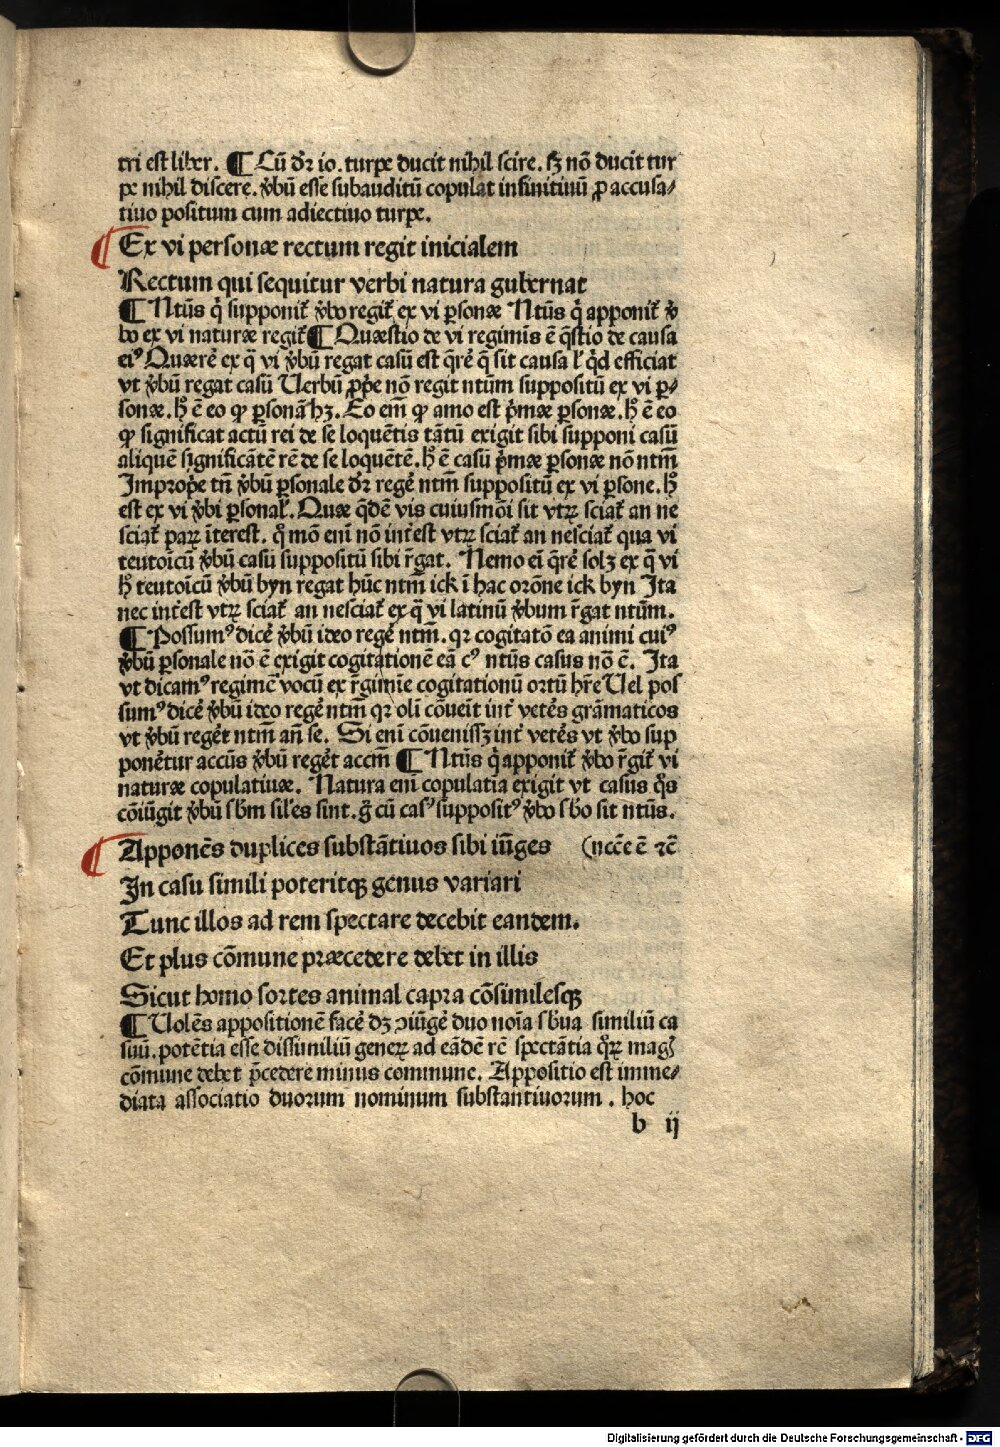 tri est liber. ¶ Cū dr̄ io. turpe ducit nihil scire. sꝫ nō ducit tur
pe nihil discere. v̆bū esse subauditū copulat infinitiuū ꝓ accusa⸗
tiuo positum cum adiectiuo turpe.
¶ Ex vi personæ rectum regit inicialem
Rectum qui sequitur verbi natura gubernat
¶ Ntūs q̇ supponit᷑ v̆bo regit᷑ ex vi ꝑsonæ Ntūs q̇ apponit᷑ v̆
bo ex vi naturæ regit᷑ ¶ Quæstio de vi regimīs ē q̄stio de causa
eiꝰ Quærē ex q̄ vi v̆bū regat casū est q̄rē q̄ sit causa l̛ q̇d efficiat
vt v̆bū regat casū Uerbū ꝓpͥe nō regit ntūm suppositū ex vi ꝑ⸗
sonæ. hͦ ē eo ꝙ ꝑsonā hꝫ. Eo em̄ ꝙ amo est pͥmæ ꝑsonæ. hͦ ē eo
ꝙ significat actū rei de se loquētis tātū exigit sibi supponi casū
aliquē significātē rē de se loquētē. hͦ ē casū pͥmæ ꝑsonæ nō ntm̄
Impropͥe tn̄ v̆bū ꝑsonale dr̄ regē ntm̄ suppositū ex vi ꝑsone. hͦ
est ex vi v̆bi ꝑsonal̛. Quæ q̇dē vis cuiusmōi sit vtrꝝ sciat᷑ an ne
sciat᷑ parꝝ īterest. qͦ mō eni nō int̛est vtrꝝ sciat᷑ an nesciat᷑ qua vi
teutoīcū v̆bū casū suppositū sibi r̄gat. Nemo ei q̄rē solꝫ ex q̄ vi
hͦ teutoīcū v̆bū byn regat hūc ntm̄ ick ī hac orōne ick byn Ita
nec int̛est vtrꝝ sciat᷑ an nesciat᷑ ex q̄ vi latinū v̆bum r̄gat ntūm.
¶ Possumꝰ dicē v̆bū ideo regē ntm̄. qꝛ cogitatō ea animi cuiꝰ
v̆bū ꝑsonale nō ē exigit cogitationē eā cꝰ ntūs casus nō ē. Ita
vt dicamꝰ regimē vocū ex r̄gimīe cogitationū ortū hr̄e Uel pos
sumꝰ dicē v̆bū ideo regē ntm̄ qꝛ oli cōueīt int̛ vetēs grāmaticos
vt v̆bū regēt ntm̄ an̄ se. Si eni cōuenissꝫ int̛ vetēs vt v̆bo sup
ponētur accūs v̆bū regēt accm̄ ¶ Ntūs q̇ apponit᷑ v̆bo r̄git᷑ vi
naturæ copulatiuæ. Natura eni copulatia exigit vt casus q̇s
cōiūgit v̆bū sb̄m sil̛es sint. g̊ cū casꝰ suppositꝰ v̆bo sb̄o sit ntūs.
¶ Apponēs duplices substātiuos sibi iūges (nccē ē ⁊c̄
In casu simili poteritqꝫ genus variari
Tunc illos ad rem spectare decebit eandem.
Et plus cōmune præcedere debet in illis
Sicut homo sortes animal capra cōsimilesqꝫ
¶ Uolēs appositionē facē dꝫ ↄiūgē duo noīa sb̄ua similiū ca
suū. potētia esse dissimiliū generꝝ ad eādē rē spectātia qͦꝝ magͥ
cōmune debet p̄cedere minus commune. Appositio est imme⸗
diata associatio duorum nominum substantiuorum. hoc
b ij
Digitalisierung gefördert durch die Deutsche Forschungsgemeinschaft - DFG